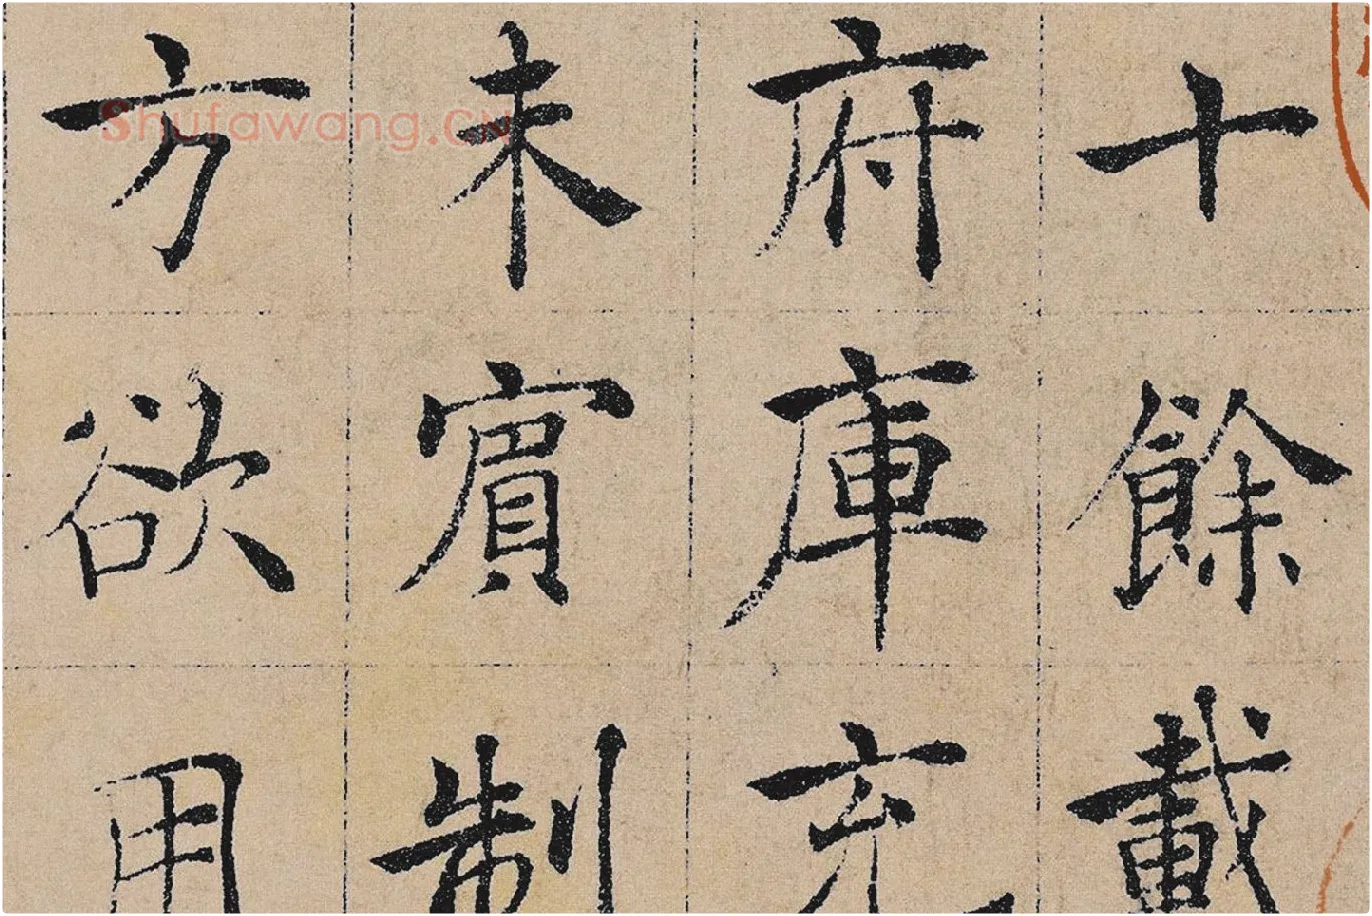 十餘載
府庫充
未賓制
方欲用
Shufawang.CN